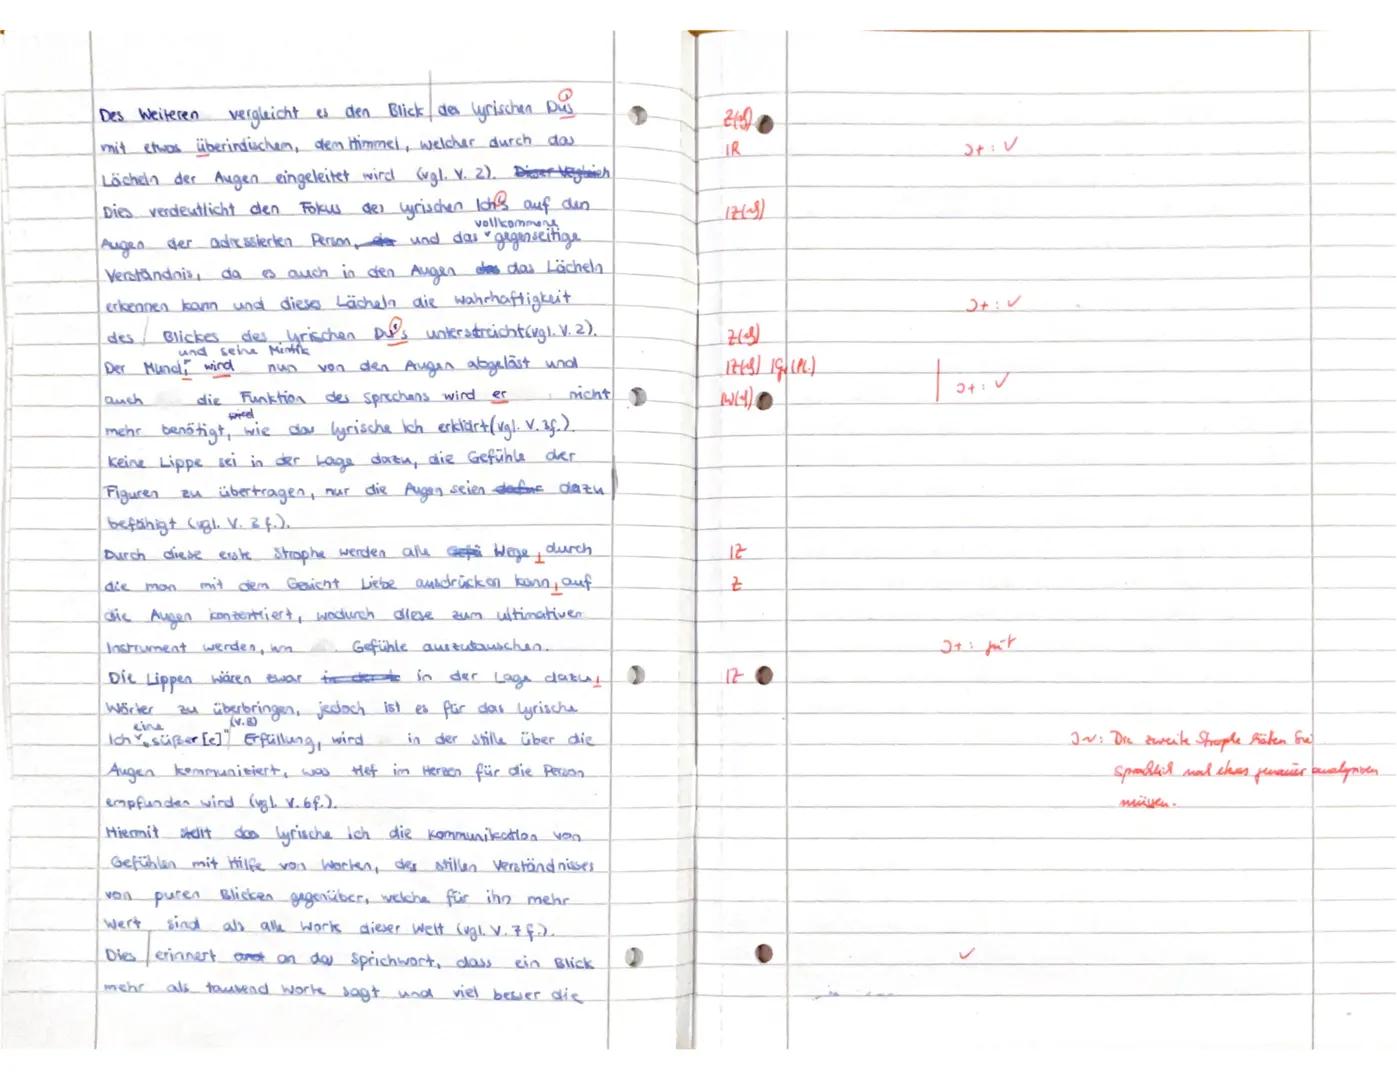 Des Weiteren vergleicht es den Blick des lyrischen Du's
mit etwas überirdischem, dem Himmel, welcher durch das
Lächeln der Augen eingeleitet wird (vgl. V. 2). Dieser Vergleich
Dies verdeutlicht den Fokus des lyrischen Ich's auf den
vollkommene
Augen der adressierten Person, und das gegenseitige
Verständnis, da es auch in den Augen das Lächeln
erkennen kann und dieses Lächeln die Wahrhaftigkeit
des Blickes des lyrischen Du's unterstreicht (vgl. V. 2).
und seine Mimik
Der Mund, wird nun von den Augen abgelöst und
auch die Funktion des Sprechens wird er nicht
wird
mehr benötigt, wie das lyrische Ich erklärt (vgl. V. 3f.).
Keine Lippe sei in der Lage dazu, die Gefühle der
Figuren zu übertragen, nur die Augen seien dafür dazu
befähigt (vgl. V. 3 f.).
Durch diese erste Strophe werden alle Wege, durch
die man mit dem Gesicht Liebe ausdrücken kann, auf
die Augen konzentriert, wodurch diese zum ultimativen
Instrument werden, um Gefühle auszutauschen.
Die Lippen wären zwar in der Lage dazu,
Wörter zu überbringen, jedoch ist es für das lyrische
eine (V. 8)
Ich "süßer[e]" Erfüllung, wird in der Stille über die
Augen kommuniziert, was tief im Herzen für die Person
empfunden wird (vgl. V. 6f.).
Hiermit stellt das lyrische Ich die Kommunikation von
Gefühlen mit Hilfe von Worten, des stillen Verständnisses
von puren Blicken gegenüber, welche für ihn mehr
Wert sind als alle Worte dieser Welt (vgl. V. 7 f.).
Dies erinnert an das Sprichwort, dass ein Blick
mehr als tausend Worte sagt und viel besser die
Z(-9)
IR
J+: ✓
IZ(-9)
J+: ✓
Z(-9)
IZ(-9) IGr(Pl.)
J+: ✓
IW(-9)
IZ
Z
J+: gut
IZ
J~: Die zweite Strophe hätten Sie
sprachlich noch etwas genauer analysieren
müssen.
✓